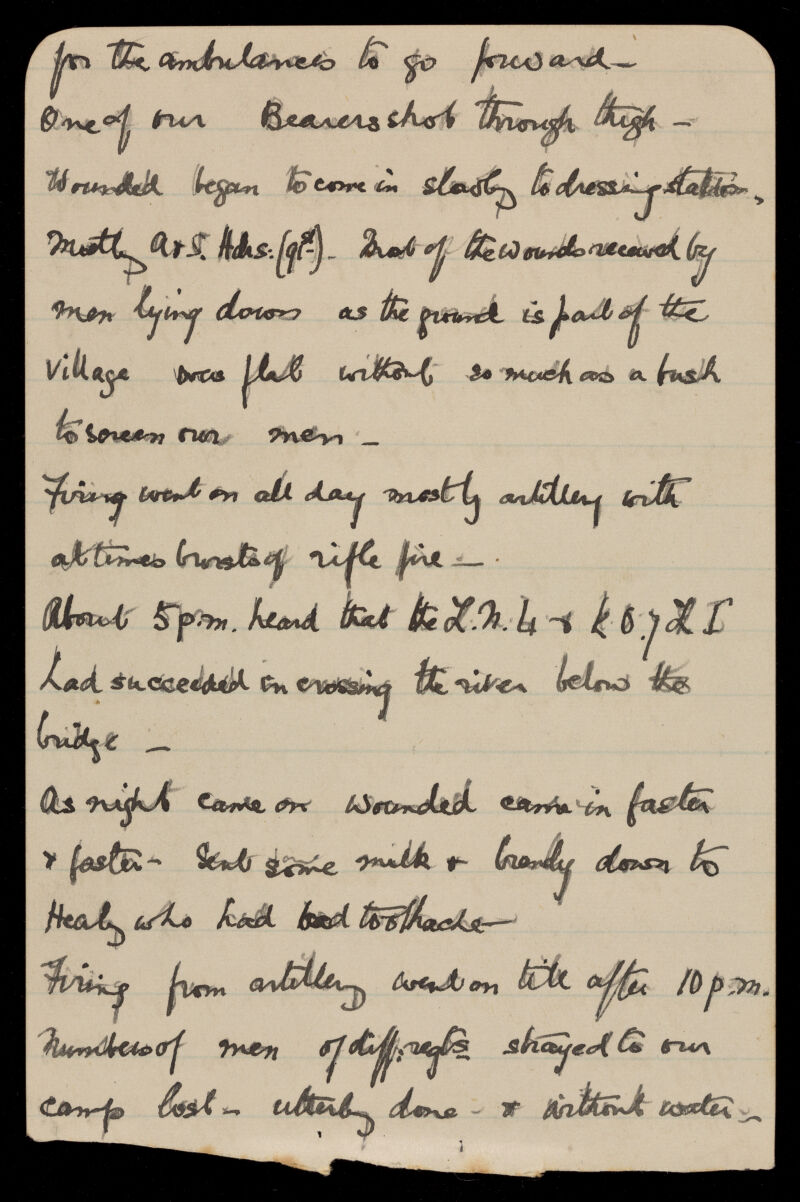 for the ambulances to go forward –
One of our Bearers shot through thigh –
Wounded began to come in slowly to dressing station,
Mostly A & S. Hdrs: (91st). Most of the wounds received by
men lying down as the ground is part of the
village was flat without so much as a bush
to screen our men –
Firing went on all day mostly artillery with
at times bursts of rifle fire –
About 5 p.m. heard that the L.N.L & K O.Y L I
had succeeded in crossing the river below the
bridge –
As night came on wounded came in faster
& faster – Sent some milk & brandy down to
Healy who had bad toothache –
Firing from artillery went on till after 10 p.m.
Numbers of men of diff. regts strayed to our
camp lost – utterly done – & without water –